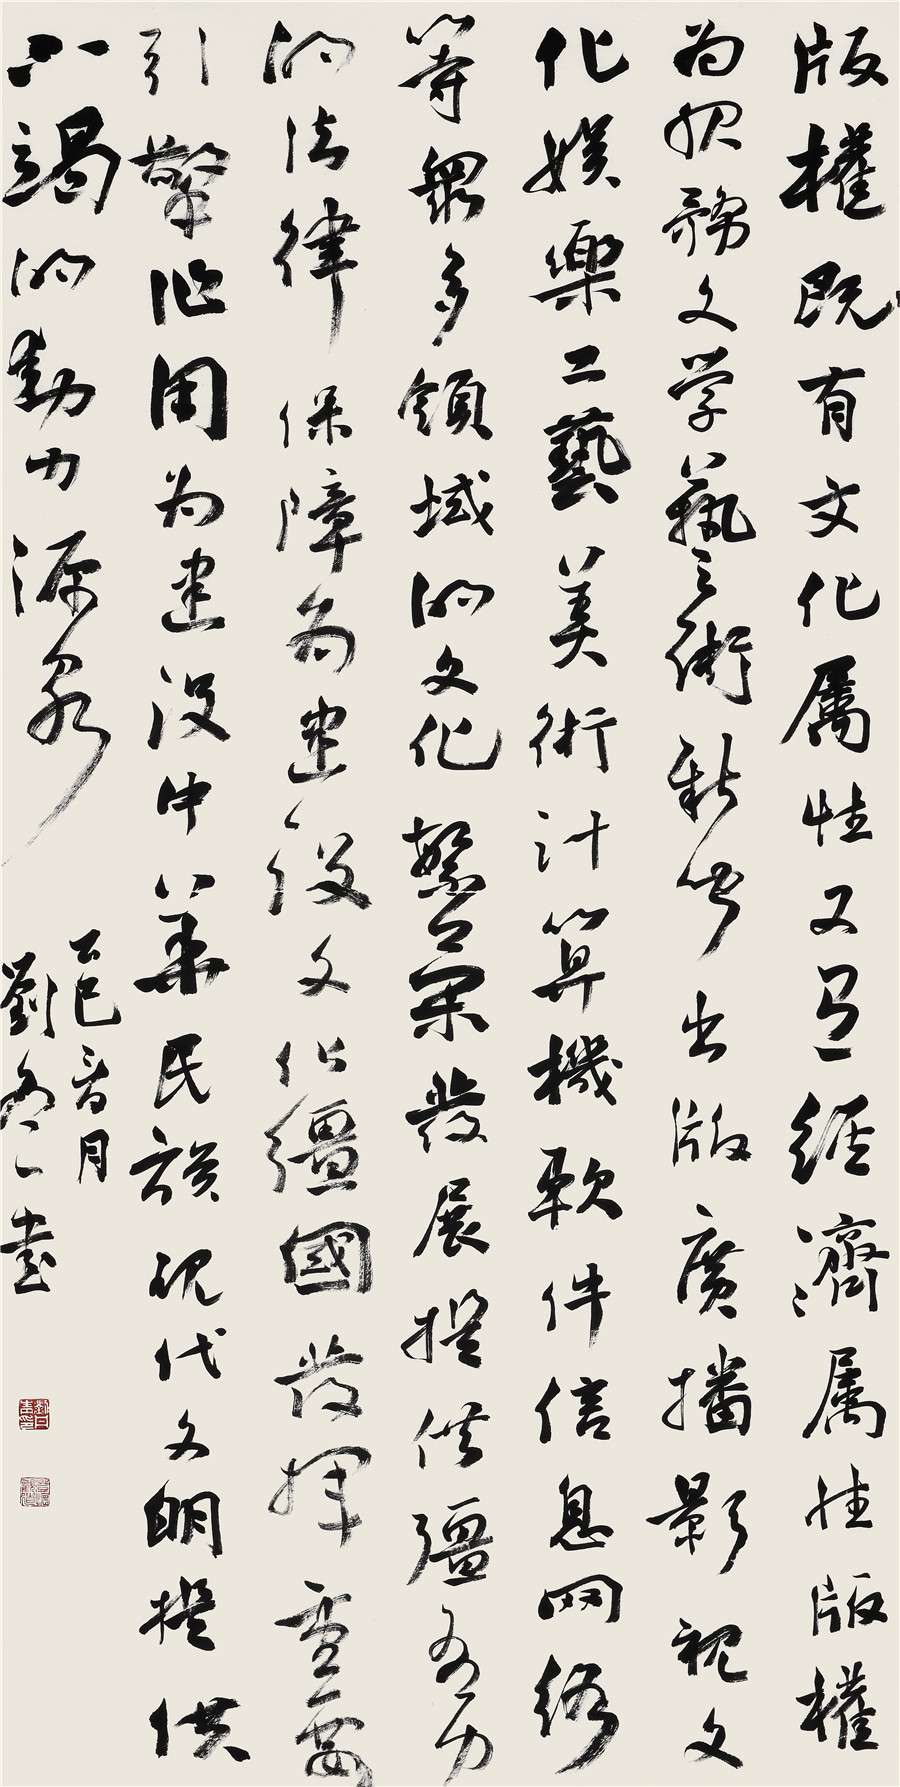 版權既有文化属性又經濟属性版權
为服務文学藝術新闻出版廣播影視文
化娱樂工藝美術計算機軟件信息网络
等眾多領域的文化繁榮發展提供彊有力
的法律保障为建设文化彊國發揮重要
引擎作用为建设中華民族現代文明提供
不竭的動力源泉
乙巳春月
劉書